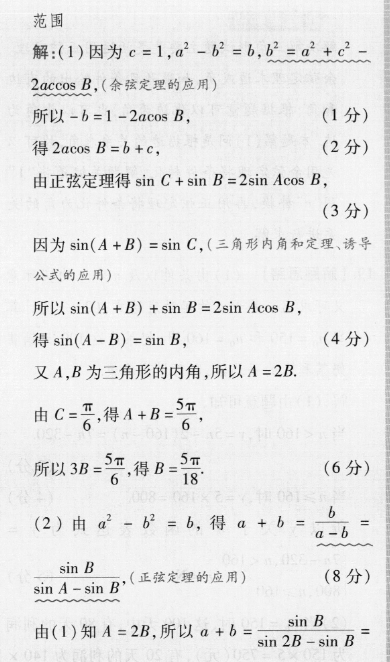 范围
解:(1)因为 c = 1, a² - b² = b, b² = a² + c² -
2accos B,(余弦定理的应用)
所以 -b = 1 - 2acos B, (1 分)
得 2acos B = b + c, (2 分)
由正弦定理得 sin C + sin B = 2sin Acos B,
(3 分)
因为 sin(A + B) = sin C,(三角形内角和定理、诱导
公式的应用)
所以 sin(A + B) + sin B = 2sin Acos B,
得 sin(A - B) = sin B, (4 分)
又 A,B 为三角形的内角,所以 A = 2B.
由 C = π/6,得 A + B = 5π/6,
所以 3B = 5π/6,得 B = 5π/18. (6 分)
(2) 由 a² - b² = b, 得 a + b = b/(a - b) =
sin B/(sin A - sin B),(正弦定理的应用) (8 分)
由(1)知 A = 2B,所以 a + b = sin B/(sin 2B - sin B) =